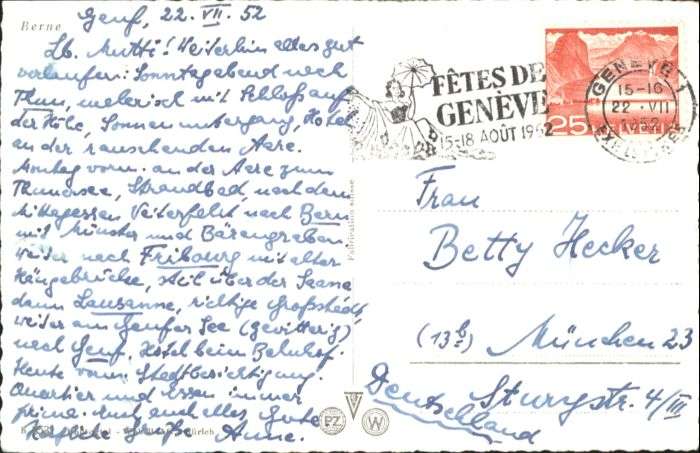 Berne
Genf, 22. VII. 52
Lb. Mutti! Weiterhin alles gut
verlaufen: Sonntagabend nach
Thun, malerisch mit Schloß auf
der Höhe, Sonnenuntergang, Hotel
an der rauschenden Aare.
Montag vorm. an der Aare zum
Thunersee, Strandbad, nach dem
Mittagessen Weiterfahrt nach Bern
mit Münster und Bärengraben
weiter nach Fribourg mit alter
Hängebrücke, steil über der Saane
dann Lausanne, richtige Großstadt,
weiter am Genfer See (gewittrig)
nach Genf. Hotel beim Bahnhof.
Heute vorm. Stadtbesichtigung.
Quartier und Essen immer
prima. Euch auch alles Gute
Herzliche Grüße Anne.
FÊTES DE
GENÈVE
15-18 AOÛT 1952
GENÈVE 1
15-16
22.VII
1952
25
Fabrication suisse
Frau
Betty Hecker
(13b) München 23
Sturystr. 4/III
Deutschland
PZ
W